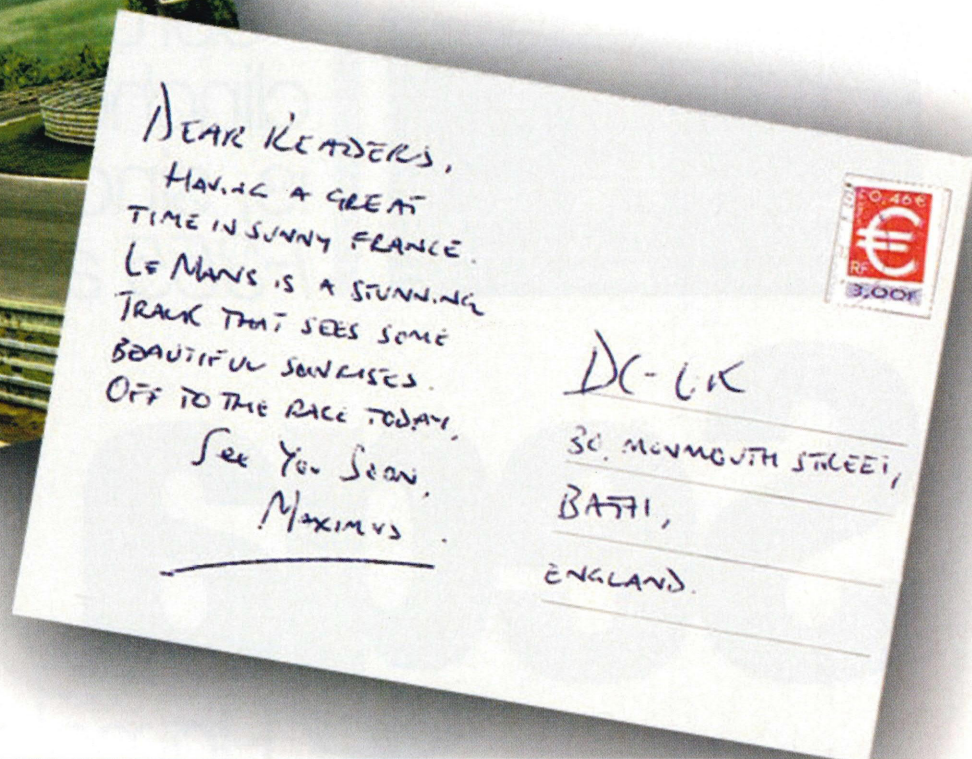 DEAR READERS,
HAVING A GREAT
TIME IN SUNNY FRANCE.
LE MANS IS A STUNNING
TRACK THAT SEES SOME
BEAUTIFUL SUNRISES.
OFF TO THE RACE TODAY,
SEE YOU SOON,
MAXIMUS.
0,46€
€
RF
3,00F
DC-UK
30, MONMOUTH STREET,
BATH,
ENGLAND.